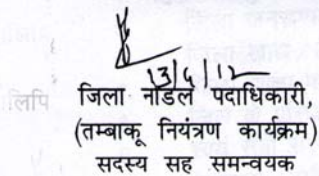 13/4/12
लिपि जिला नोडल पदाधिकारी,
(तम्बाकू नियंत्रण कार्यक्रम)
सदस्य सह समन्वयक